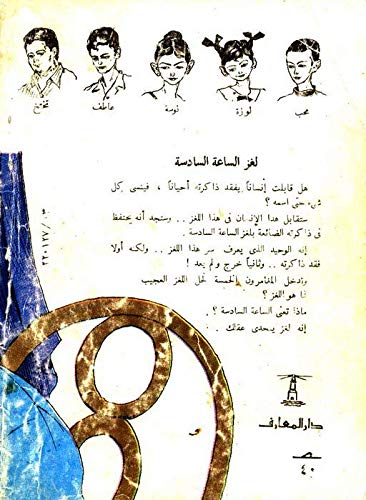 محب
لوزة
نوسة
عاطف
تختخ
لغز الساعة السادسة
هل قابلت إنساناً يفقد ذاكرته أحياناً ، فينسى كل
شىء حتى اسمه ؟
ستقابل هذا الإنسان فى هذا اللغز .. وستجد أنه يحتفظ
فى ذاكرته الضائعة بلغز الساعة السادسة .
إنه الوحيد الذى يعرف سر هذا اللغز .. ولكنه أولا
فقد ذاكرته .. وثانياً خرج ولم يعد !
وتدخل المغامرون الخمسة لحل اللغز العجيب
فما هو اللغز ؟
ماذا تعنى الساعة السادسة ؟ .
إنه لغز يتحدى عقلك . .
دار المعارف
٤٠